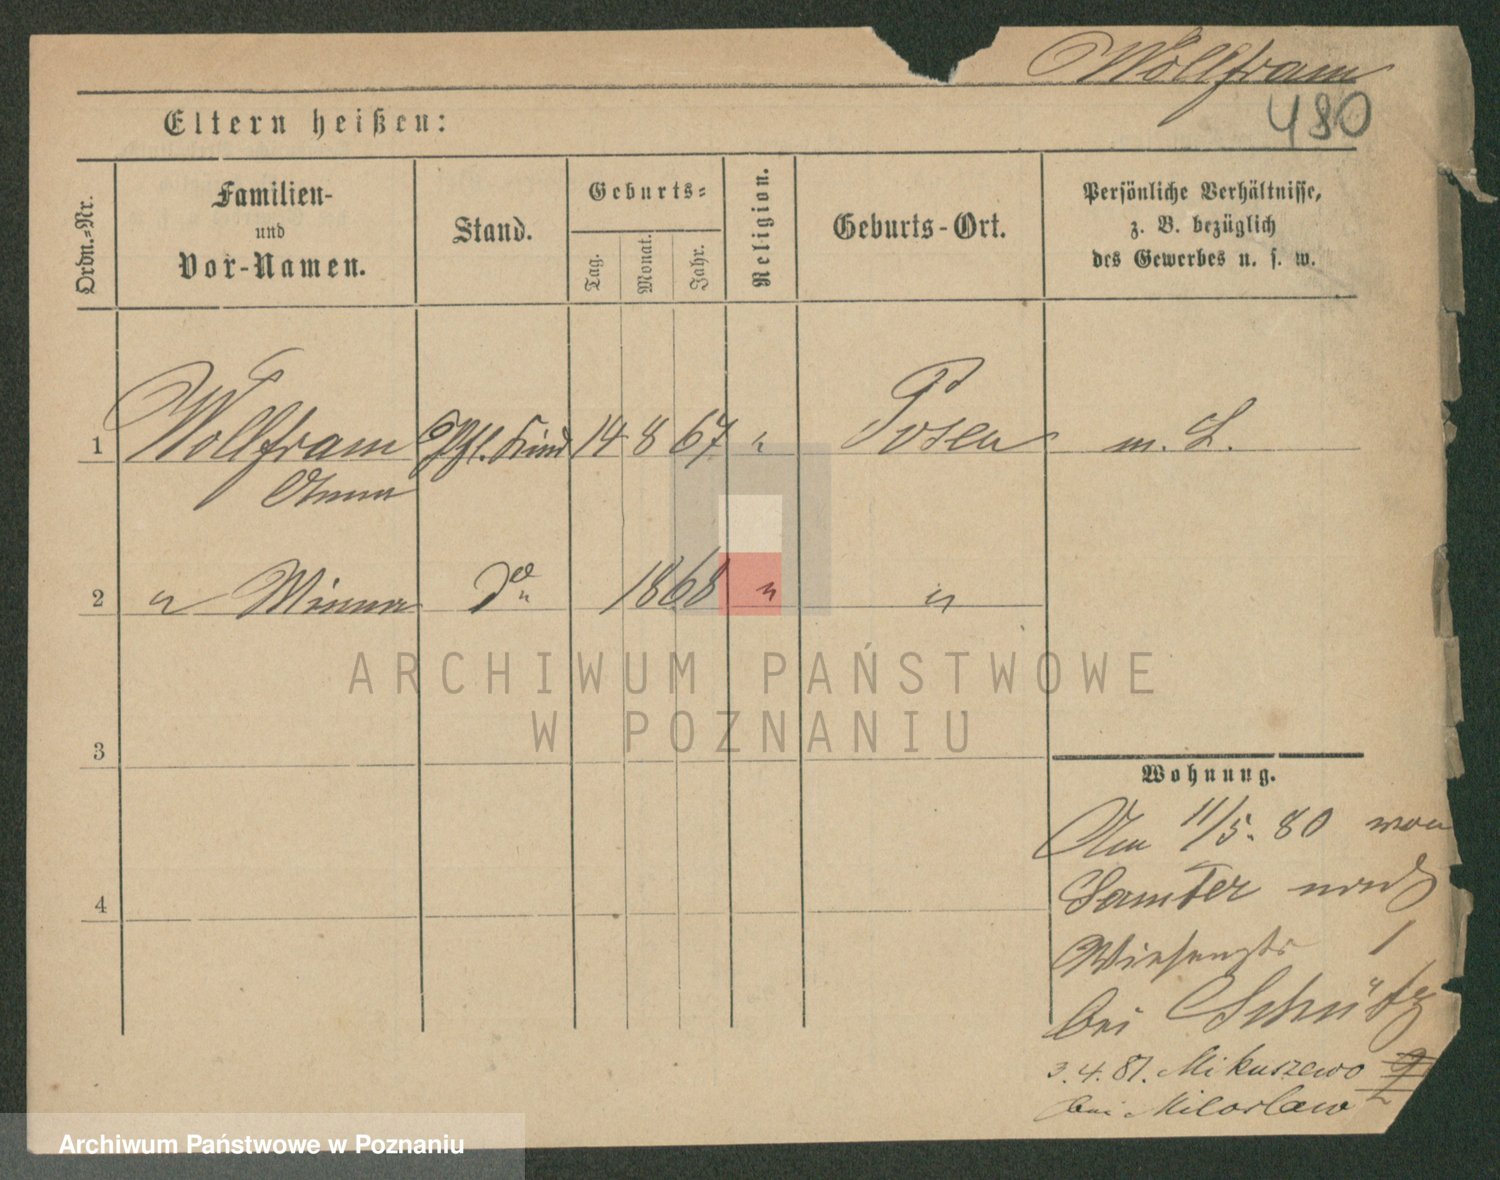 Wollfram
480
Eltern heißen:
Ordn.-Nr.
Familien-
und
Vor-Namen.
Stand.
Geburts-
Tag.
Monat.
Jahr.
Religion.
Geburts-Ort.
Persönliche Verhältnisse,
z. B. bezüglich
des Gewerbes u. s. w.
1 Wollfram Pfl. Kind 14 8 67 " Posen m. L.
Anna
2 " Minna do 1868 " "
3
4
ARCHIWUM PAŃSTWOWE
W POZNANIU
Wohnung.
Am 11/5. 80 von
Samter nach
Wiesengstr 1
bei Schütz
3.4.87. Mikuszewo
bei Miloslaw
Archiwum Państwowe w Poznaniu